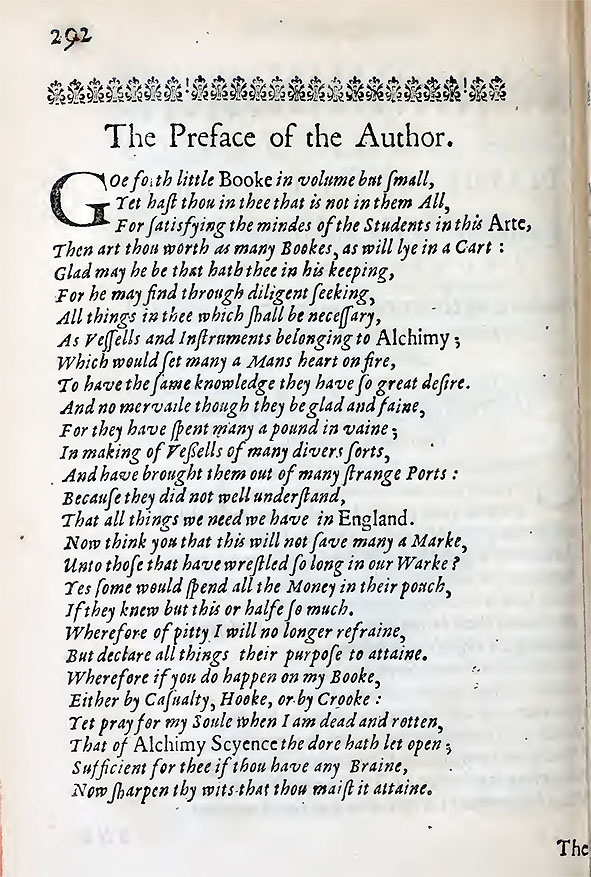 292
The Preface of the Author.
GOe forth little Booke in volume but ſmall,
Yet haſt thou in thee that is not in them All,
For ſatisfying the mindes of the Students in this Arte,
Then art thou worth as many Bookes, as will lye in a Cart :
Glad may he be that hath thee in his keeping,
For he may find through diligent ſeeking,
All things in thee which ſhall be neceſſary,
As Veſſells and Inſtruments belonging to Alchimy ;
Which would ſet many a Mans heart on fire,
To have the ſame knowledge they have ſo great deſire.
And no mervaile though they be glad and faine,
For they have ſpent many a pound in vaine ;
In making of Veßells of many divers ſorts,
And have brought them out of many ſtrange Ports :
Becauſe they did not well underſtand,
That all things we need we have in England.
Now think you that this will not ſave many a Marke,
Unto thoſe that have wreſtled ſo long in our Warke ?
Yes ſome would ſpend all the Money in their pouch,
If they knew but this or halfe ſo much.
Wherefore of pitty I will no longer refraine,
But declare all things their purpoſe to attaine.
Wherefore if you do happen on my Booke,
Either by Caſualty, Hooke, or by Crooke :
Yet pray for my Soule when I am dead and rotten,
That of Alchimy Scyence the dore hath let open ;
Sufficient for thee if thou have any Braine,
Now ſharpen thy wits that thou maiſt it attaine.
The